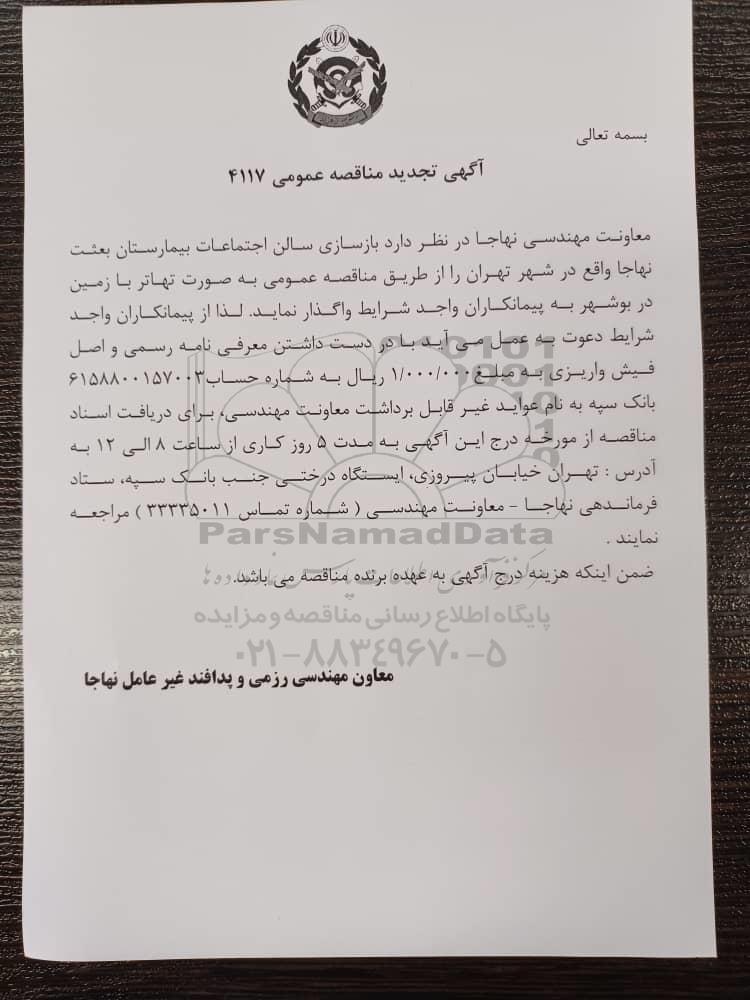 بسمه تعالی
آگهی تجدید مناقصه عمومی ۴۱۱۷
معاونت مهندسی نهاجا در نظر دارد بازسازی سالن اجتماعات بیمارستان بعثت
نهاجا واقع در شهر تهران را از طریق مناقصه عمومی به صورت تهاتر با زمین
در بوشهر به پیمانکاران واجد شرایط واگذار نماید. لذا از پیمانکاران واجد
شرایط دعوت به عمل می آید با در دست داشتن معرفی نامه رسمی و اصل
فیش واریزی به مبلغ ۱/۰۰۰/۰۰۰ ریال به شماره حساب ۶۱۵۸۸۰۰۱۵۷۰۰۳
بانک سپه به نام عواید غیر قابل برداشت معاونت مهندسی، برای دریافت اسناد
مناقصه از مورخه درج این آگهی به مدت ۵ روز کاری از ساعت ۸ الی ۱۲ به
آدرس : تهران خیابان پیروزی، ایستگاه درختی جنب بانک سپه، ستاد
فرماندهی نهاجا - معاونت مهندسی ( شماره تماس ۳۳۳۳۵۰۱۱ ) مراجعه
نمایند .
ParsNamadData
ضمن اینکه هزینه درج آگهی به عهده برنده مناقصه می باشد.
پایگاه اطلاع رسانی مناقصه و مزایده
۰۲۱-۸۸۳۴۹۶۷۰-۵
معاون مهندسی رزمی و پدافند غیر عامل نهاجا